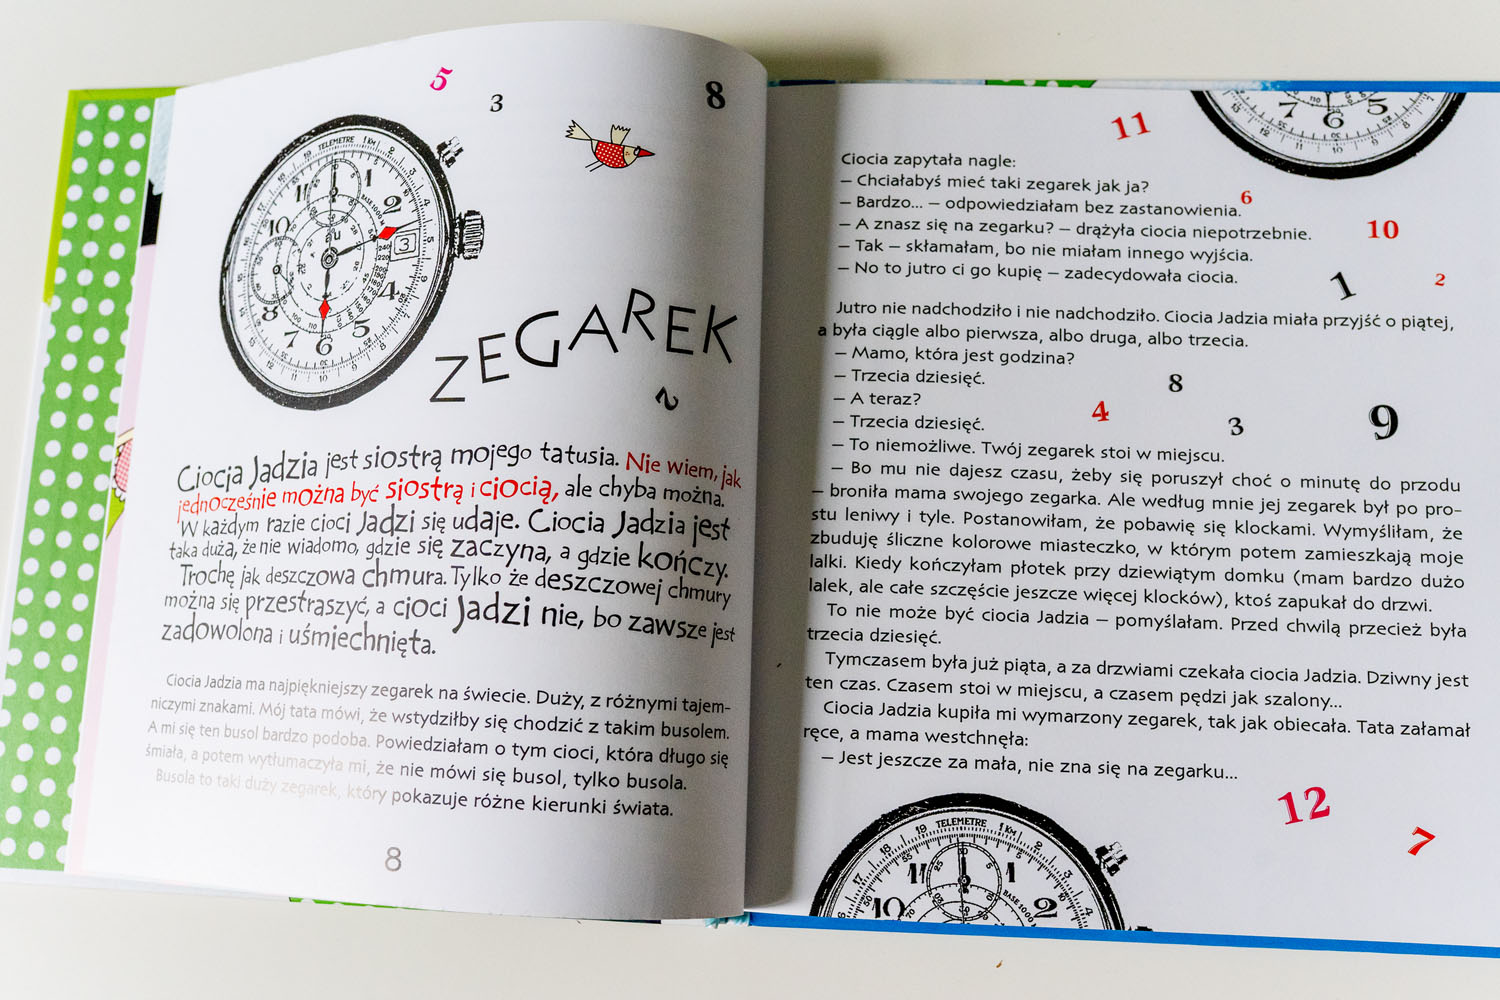 5
3
8
TELEMETRE 1 KM
11
1
10
2
BASE 1000 M
3
8
4
7
5
6
ZEGAREK
2
Ciocia Jadzia jest siostrą mojego tatusia. Nie wiem, jak
jednocześnie można być siostrą i ciocią, ale chyba można.
W każdym razie cioci Jadzi się udaje. Ciocia Jadzia jest
taka duża, że nie wiadomo, gdzie się zaczyna, a gdzie kończy.
Trochę jak deszczowa chmura. Tylko że deszczowej chmury
można się przestraszyć, a cioci Jadzi nie, bo zawsze jest
zadowolona i uśmiechnięta.
Ciocia Jadzia ma najpiękniejszy zegarek na świecie. Duży, z różnymi tajem-
niczymi znakami. Mój tata mówi, że wstydziłby się chodzić z takim busolem.
A mi się ten busol bardzo podoba. Powiedziałam o tym cioci, która długo się
śmiała, a potem wytłumaczyła mi, że nie mówi się busol, tylko busola.
Busola to taki duży zegarek, który pokazuje różne kierunki świata.
8
7
6
5
11
Ciocia zapytała nagle:
– Chciałabyś mieć taki zegarek jak ja?
– Bardzo... – odpowiedziałam bez zastanowienia.
6
– A znasz się na zegarku? – drążyła ciocia niepotrzebnie.
10
– Tak – skłamałam, bo nie miałam innego wyjścia.
– No to jutro ci go kupię – zadecydowała ciocia.
1
2
Jutro nie nadchodziło i nie nadchodziło. Ciocia Jadzia miała przyjść o piątej,
a była ciągle albo pierwsza, albo druga, albo trzecia.
– Mamo, która jest godzina?
– Trzecia dziesięć.
8
– A teraz?
4
– Trzecia dziesięć.
3
9
– To niemożliwe. Twój zegarek stoi w miejscu.
– Bo mu nie dajesz czasu, żeby się poruszył choć o minutę do przodu
– broniła mama swojego zegarka. Ale według mnie jej zegarek był po pro-
stu leniwy i tyle. Postanowiłam, że pobawię się klockami. Wymyśliłam, że
zbuduję śliczne kolorowe miasteczko, w którym potem zamieszkają moje
lalki. Kiedy kończyłam płotek przy dziewiątym domku (mam bardzo dużo
lalek, ale całe szczęście jeszcze więcej klocków), ktoś zapukał do drzwi.
To nie może być ciocia Jadzia – pomyślałam. Przed chwilą przecież była
trzecia dziesięć.
Tymczasem była już piąta, a za drzwiami czekała ciocia Jadzia. Dziwny jest
ten czas. Czasem stoi w miejscu, a czasem pędzi jak szalony...
Ciocia Jadzia kupiła mi wymarzony zegarek, tak jak obiecała. Tata załamał
ręce, a mama westchnęła:
– Jest jeszcze za mała, nie zna się na zegarku...
12
7
TELEMETRE 1 KM
11
1
10
2
BASE 1000 M